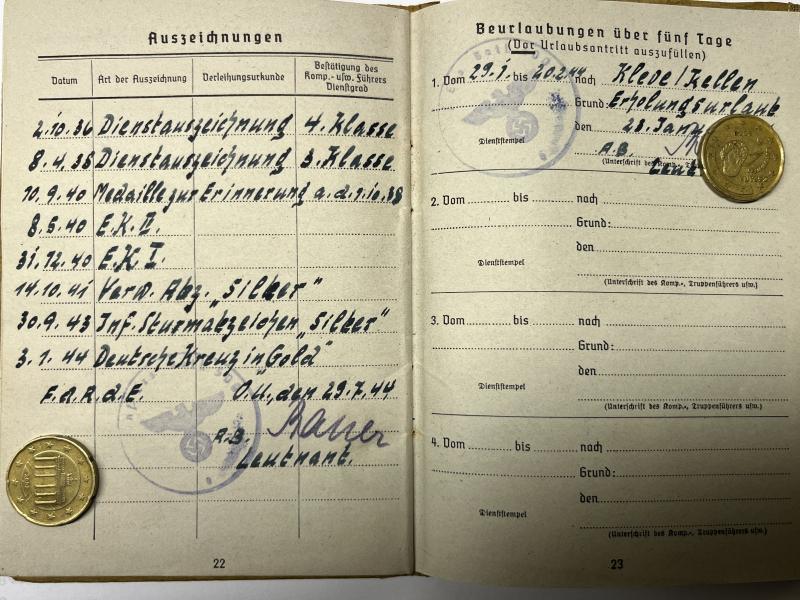 Auszeichnungen
Datum
Art der Auszeichnung
Verleihungsurkunde
Bestätigung des
Komp.- usw. Führers
Dienstgrad
2.10.36 Dienstauszeichnung 4. Klasse
8.4.38 Dienstauszeichnung 3. Klasse
10.9.40 Medaille zur Erinnerung a.d. 1.10.38
8.6.40 E.K. II.
31.12.40 E.K. I.
14.10.41 Verw. Abz. „Silber"
30.9.43 Inf. Sturmabzeichen „Silber"
3.1.44 Deutsche Kreuz in Gold"
F.d.R.d.E. O.U., den 29.7.44
A.B.
Leutnant.
22
Beurlaubungen über fünf Tage
(Vor Urlaubsantritt auszufüllen)
1. Vom 29.1. bis 20.2.44 nach Kleve/Kellen
Grund: Erholungsurlaub
den 28. Janu
Dienststempel
A.B.
(Unterschrift des Komp.-, Truppenführers usw.)
2. Vom bis nach
Grund:
den
Dienststempel
(Unterschrift des Komp.-, Truppenführers usw.)
3. Vom bis nach
Grund:
den
Dienststempel
(Unterschrift des Komp.-, Truppenführers usw.)
4. Vom bis nach
Grund:
den
Dienststempel
(Unterschrift des Komp.-, Truppenführers usw.)
23